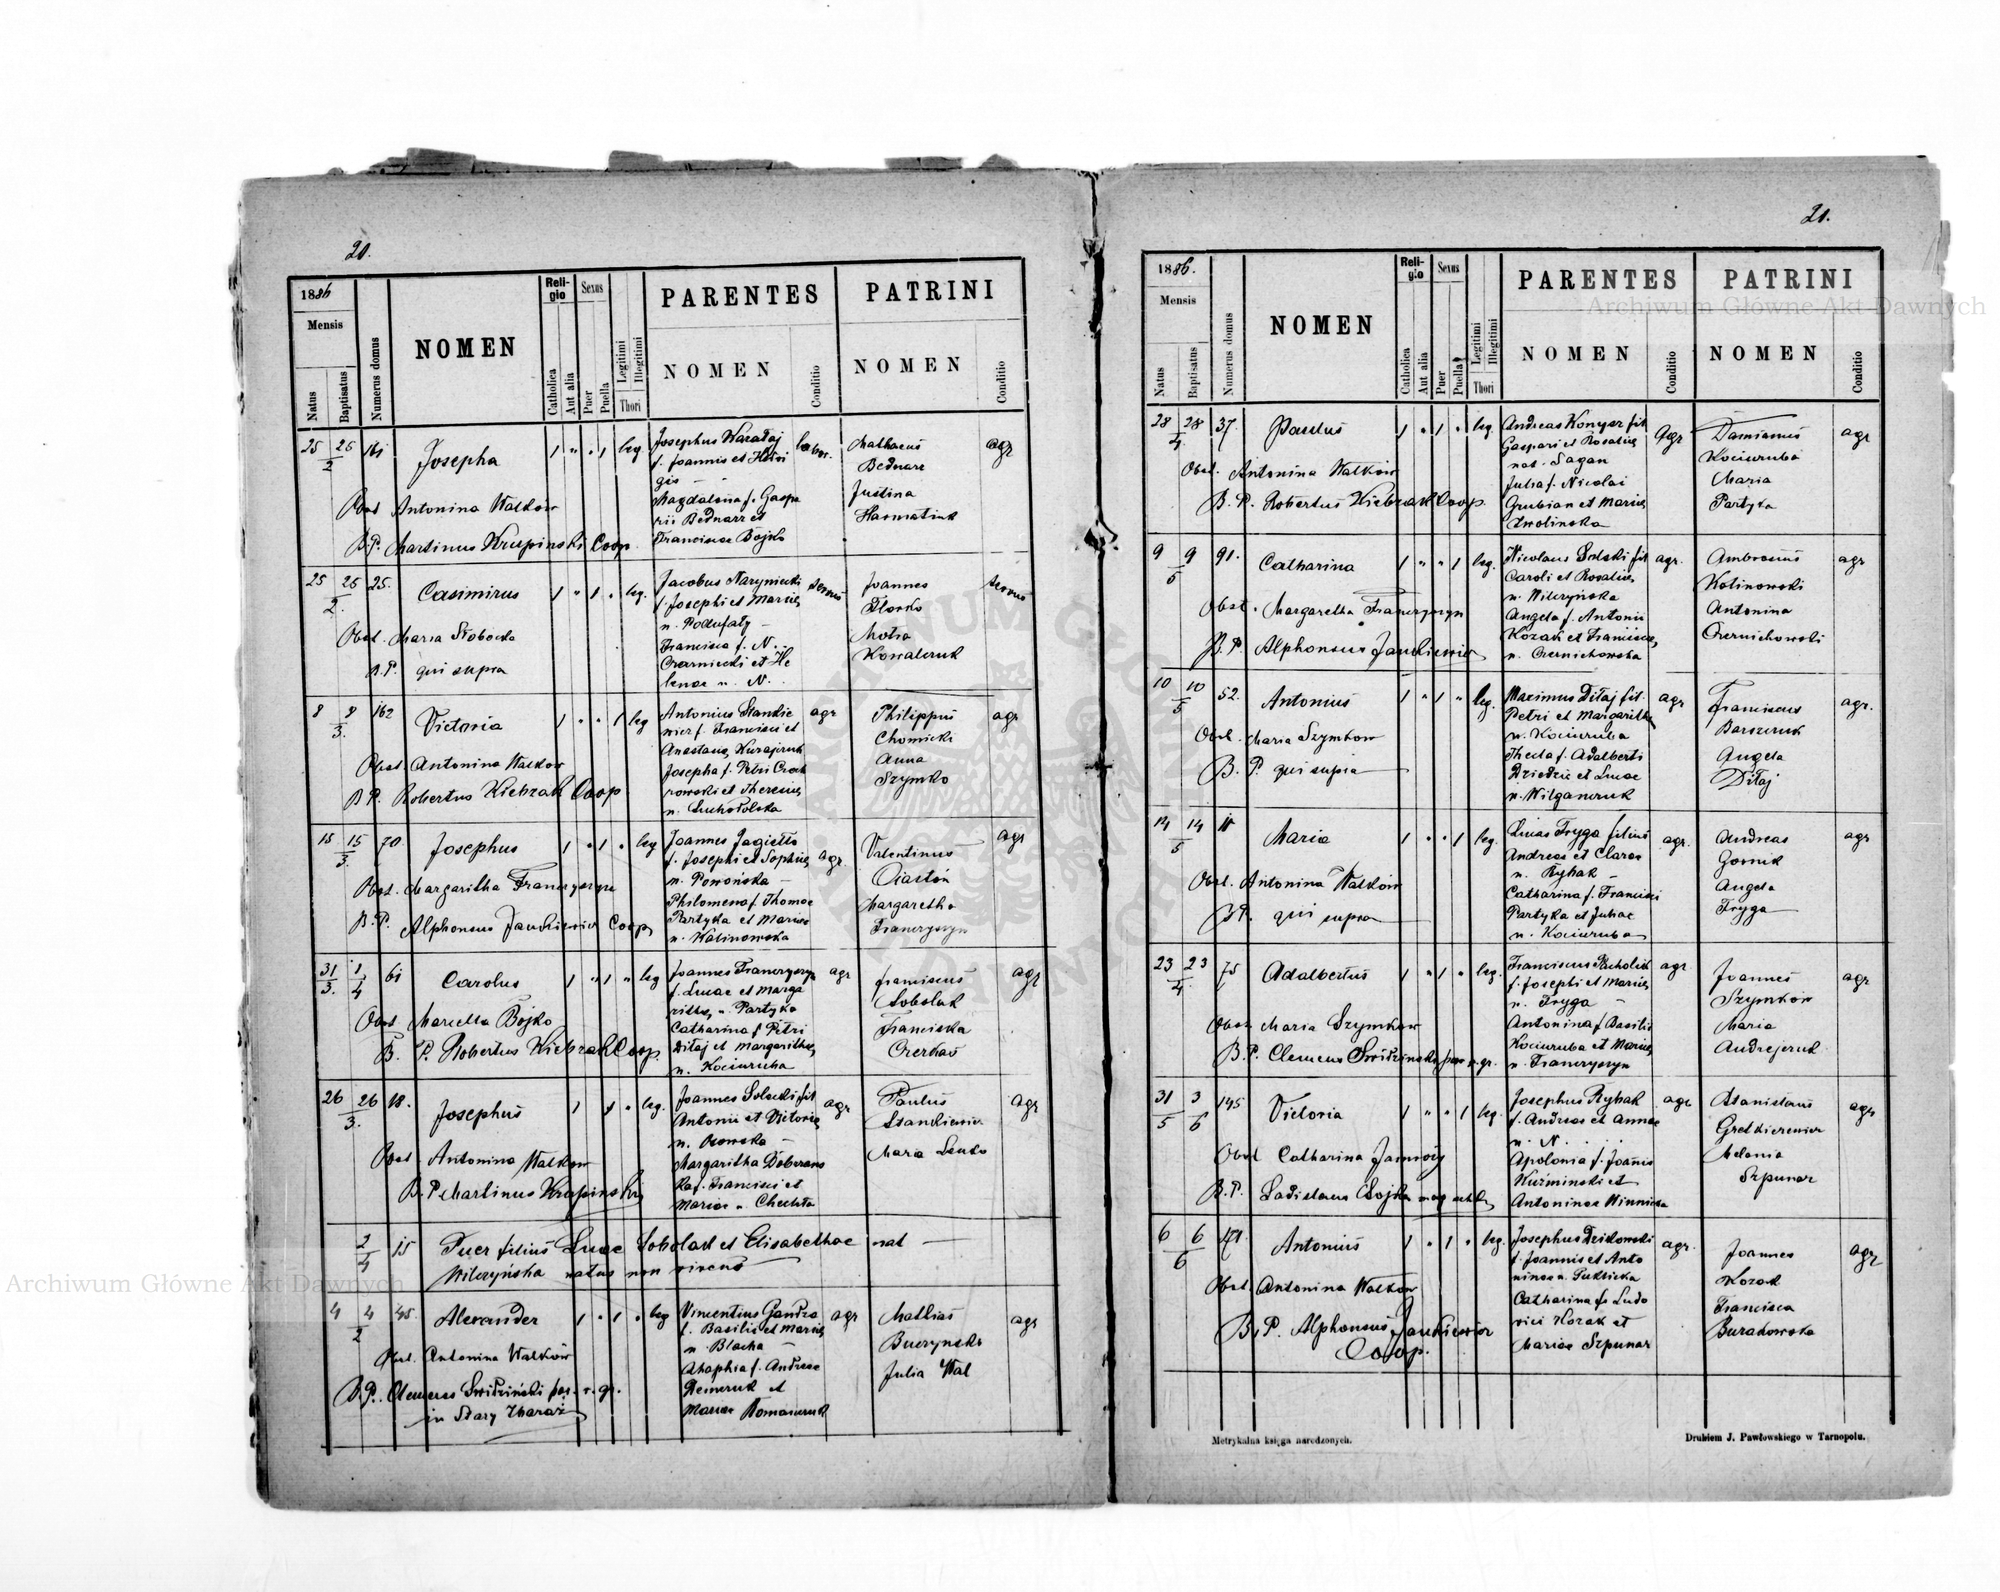 20.
1886
Mensis
Natus
Baptisatus
Numerus domus
NOMEN
Reli-
gio
Catholica
Aut alia
Sexus
Puer
Puella
Legitimi
Illegitimi
Thori
PARENTES
NOMEN
Conditio
PATRINI
NOMEN
Conditio
25 25/2 161 Josepha 1 " . 1 leg
Josephus Warataj
f. Joannis et Hedvi
gis —
Magdalena f. Gaspa
ris Bednarz et
Francisca Bojko
Mathaeus agr
Bednarz
Justina
Harmatiuk
Obst Antonina Walków
B.P. Martinus Krupinski Coop.
25 25/2. 25. Casimirus 1 " 1 . leg.
Jacobus Naryniecki servus
f. Josephi et Mariae
n. Podufaly —
Francisca f. N.
Czarniecki et He
lenae n. N.
Joannes servus
Florko
Motra
Kowalczuk
Obst. Maria Słobocka
B.P. qui supra
8 8/3. 162 Victoria 1 " " 1 leg
Antonius Stankie agr
wicz f. Francisci et
Anastasiae Kurajczuk
Josepha f. Petri Czech
rowski et Theresiae
n. Suchopolska
Philippus agr
Chomicki
Anna
Szymko
Obst. Antonina Walków
B.P. Robertus Kiebzak Coop
15 15/3. 70 Josephus 1 . 1 . leg
Joannes Jagiełło
f. Josephi et Sophiae agr
n. Powońska —
Philomena f. Thomae
Partyka et Mariae
n. Kalinowska
Valentinus agr
Ciastoń
Margaretha
Franczyszyn
Obst. Margaritha Franczyszyn
B.P. Alphonsus Jankiewicz Coop
31/3. 1/4 61 Carolus 1 " 1 " leg
Joannes Franczyszyn agr
f. Lucae et Marga
rithae n. Partyka
Catharina f. Petri
Diłaj et Margarithae
n. Kociuruba
Franciscus agr
Sobolak
Franciska
Czerkas
Obst Marcella Bojko
B. P. Robertus Kiebzak Coop
26 26/3. 18. Josephus 1 1 " leg.
Joannes Solecki fil
Antonii et Victoriae agr
n. Osowska —
Margaritha Doberans
ka f. Francisci et
Mariae n. Chechła
Paulus agr
Stankiewicz
Maria Senko
Obst Antonina Walkow
B. P. Martinus Krupinski
2/4 15 Puer filius Lucae Sobolak et Elisabethae nat —
Wilczyńska natus non vivens
4 4/2 45. Alexander 1 . 1 . leg
Vincentius Gandza agr
f. Basilii et Mariae
n. Blacha —
Ahaphia f. Andreae
Remeruk et
Mariae Romanczuk
Mathias agr
Buczynski
Julia Wal
Obst. Antonina Walków
B.P. Clemens Swidziński par. r. gr.
in Stary Zbaraż
21.
1886.
Mensis
Natus
Baptisatus
Numerus domus
NOMEN
Reli-
gio
Catholica
Aut alia
Sexus
Puer
Puella
Legitimi
Illegitimi
Thori
PARENTES
NOMEN
Conditio
PATRINI
NOMEN
Conditio
28 28/4. 37. Paulus 1 . 1 " leg.
Andreas Konyar fil agr
Gaspari et Rosaliae
nat. Sagan
Julia f. Nicolai
Grubian et Mariae
Zwolinska
Damianus agr
Kociuruba
Maria
Partyka
Obst. Antonina Walków
B. P. Robertus Kiebzak Coop.
9 9/5 91. Catharina 1 " " 1 leg.
Nicolaus Solski fil agr.
Caroli et Rosaliae
n. Wilczyńska
Angela f. Antonii
Kozak et Franciscae
n. Czernichowska
Ambrosius agr
Kalinowski
Antonina
Czernichowski
Obst. Margaretha Franczyszyn
B. P. Alphonsus Jankiewicz
10 10/5 52. Antonius 1 " 1 " leg.
Maximus Diłaj fil. agr
Petri et Margarithae
n. Kociuruba
Thecla f. Adalberti
Dziedzic et Lucae
n. Wilganczuk
Franciscus agr.
Barszczuk
Angela
Diłaj
Obst. Maria Szymkow
B. P. qui supra
14 14/5 11 Maria 1 . . 1 leg.
Lucas Fryga filius agr.
Andreae et Clarae
n. Rybak —
Catharina f. Francisci
Partyka et Juliae
n. Kociuruba
Andreas agr
Gornik
Angela
Fryga
Obst. Antonina Walków
B.P. qui supra
23 23/4. 75 Adalbertus 1 " 1 " leg.
Franciscus Pacholik agr
f. Josephi et Mariae
n. Fryga —
Antonina f Basilii
Kociuruba et Mariae
n. Franczyszyn
Joannes agr
Szymków
Maria
Andrejczuk
Obst Maria Szymkow
B.P. Clemens Swidzinski par r. gr.
31/5 3/6 145 Victoria 1 " " 1 leg.
Josephus Rybak agr
f. Andreae et Annae
n. N.
Apolonia f. Joannis
Kuźminski et
Antoninae Winnicka
Stanislaus agr
Gretkierewicz
Melania
Szpunar
Obst Catharina Jamroży
B.P. Ladislaus Sojka
6 6/6 171. Antonius 1 . 1 . leg.
Josephus Dzikowski agr.
f. Joannis et Anto
ninae n. Puklicka
Catharina f. Ludo
vici Kozak et
Mariae Szpunar
Joannes agr
Kozak
Francisca
Burakowska
Obst. Antonina Walkow
B. P. Alphonsus Jankiewicz
Coop.
Metrykalna księga narodzonych.
Drukiem J. Pawłowskiego w Tarnopolu.
Archiwum Główne Akt Dawnych
Archiwum Główne Akt Dawnych
ARCHIWUM GŁÓWNE AKT DAWNYCH